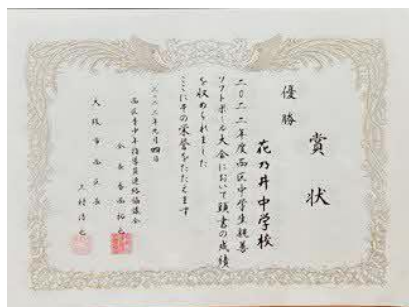 賞状
優勝
花乃井中学校
二〇二二年度西区中学生親善
ソフトボール大会において顕書の成績
を収められました
ここにその栄誉をたたえます
二〇二二年九月四日
西区青少年指導員連絡協議会
会長
大阪市西区長